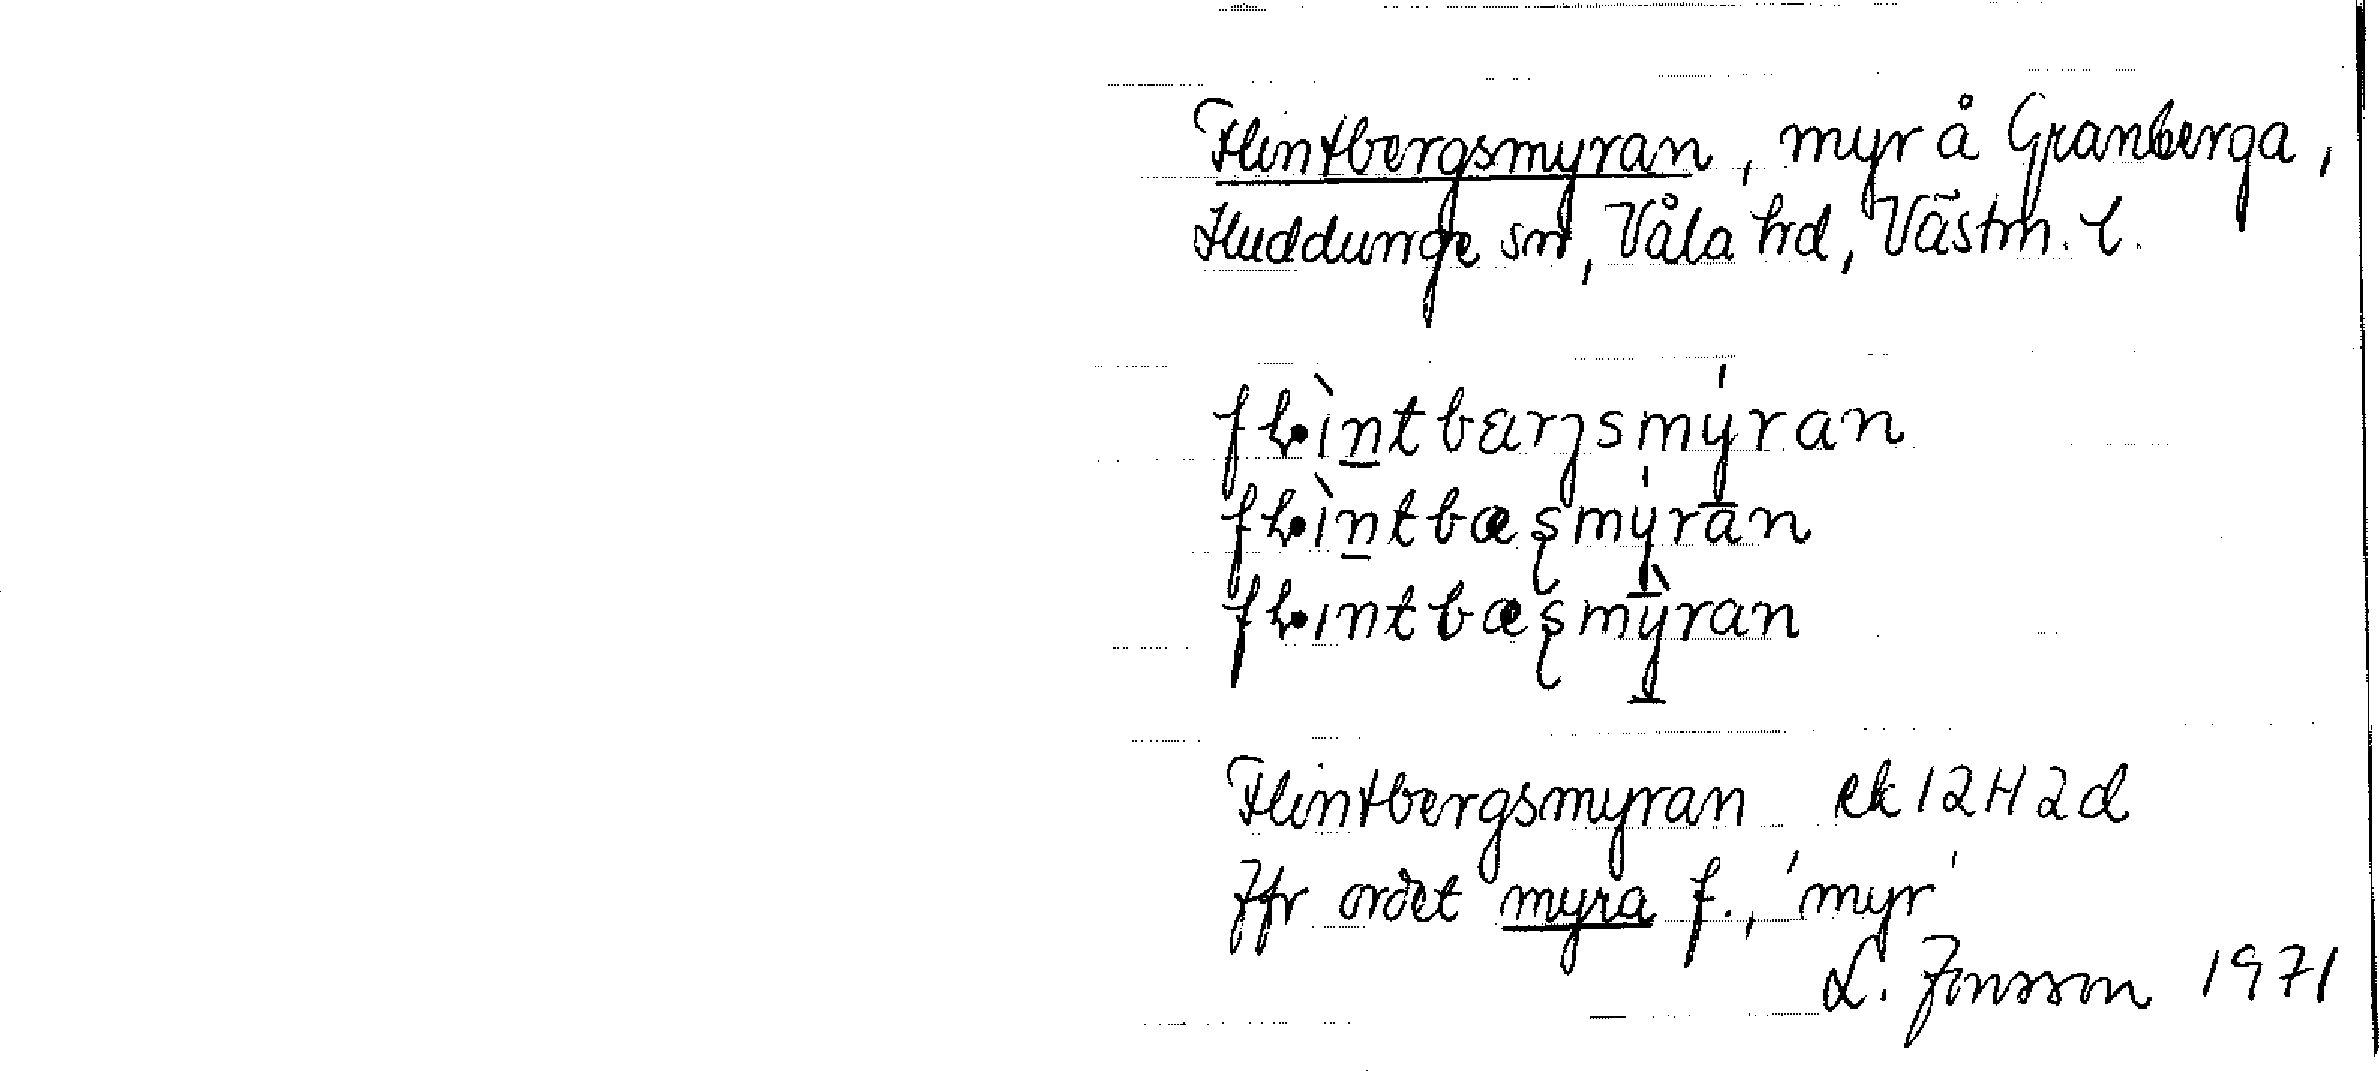 Flintbergsmyran, myr å Granberga,
Huddunge sn, Våla hd, Västm. l.
fƚìntbærȷsmýran
fƚìntbæʂmýran
fƚıntbæʂmỳran
Flintbergsmyran ek 12H2d
Jfr ordet myra f., 'myr'
L. Jonsson 1971